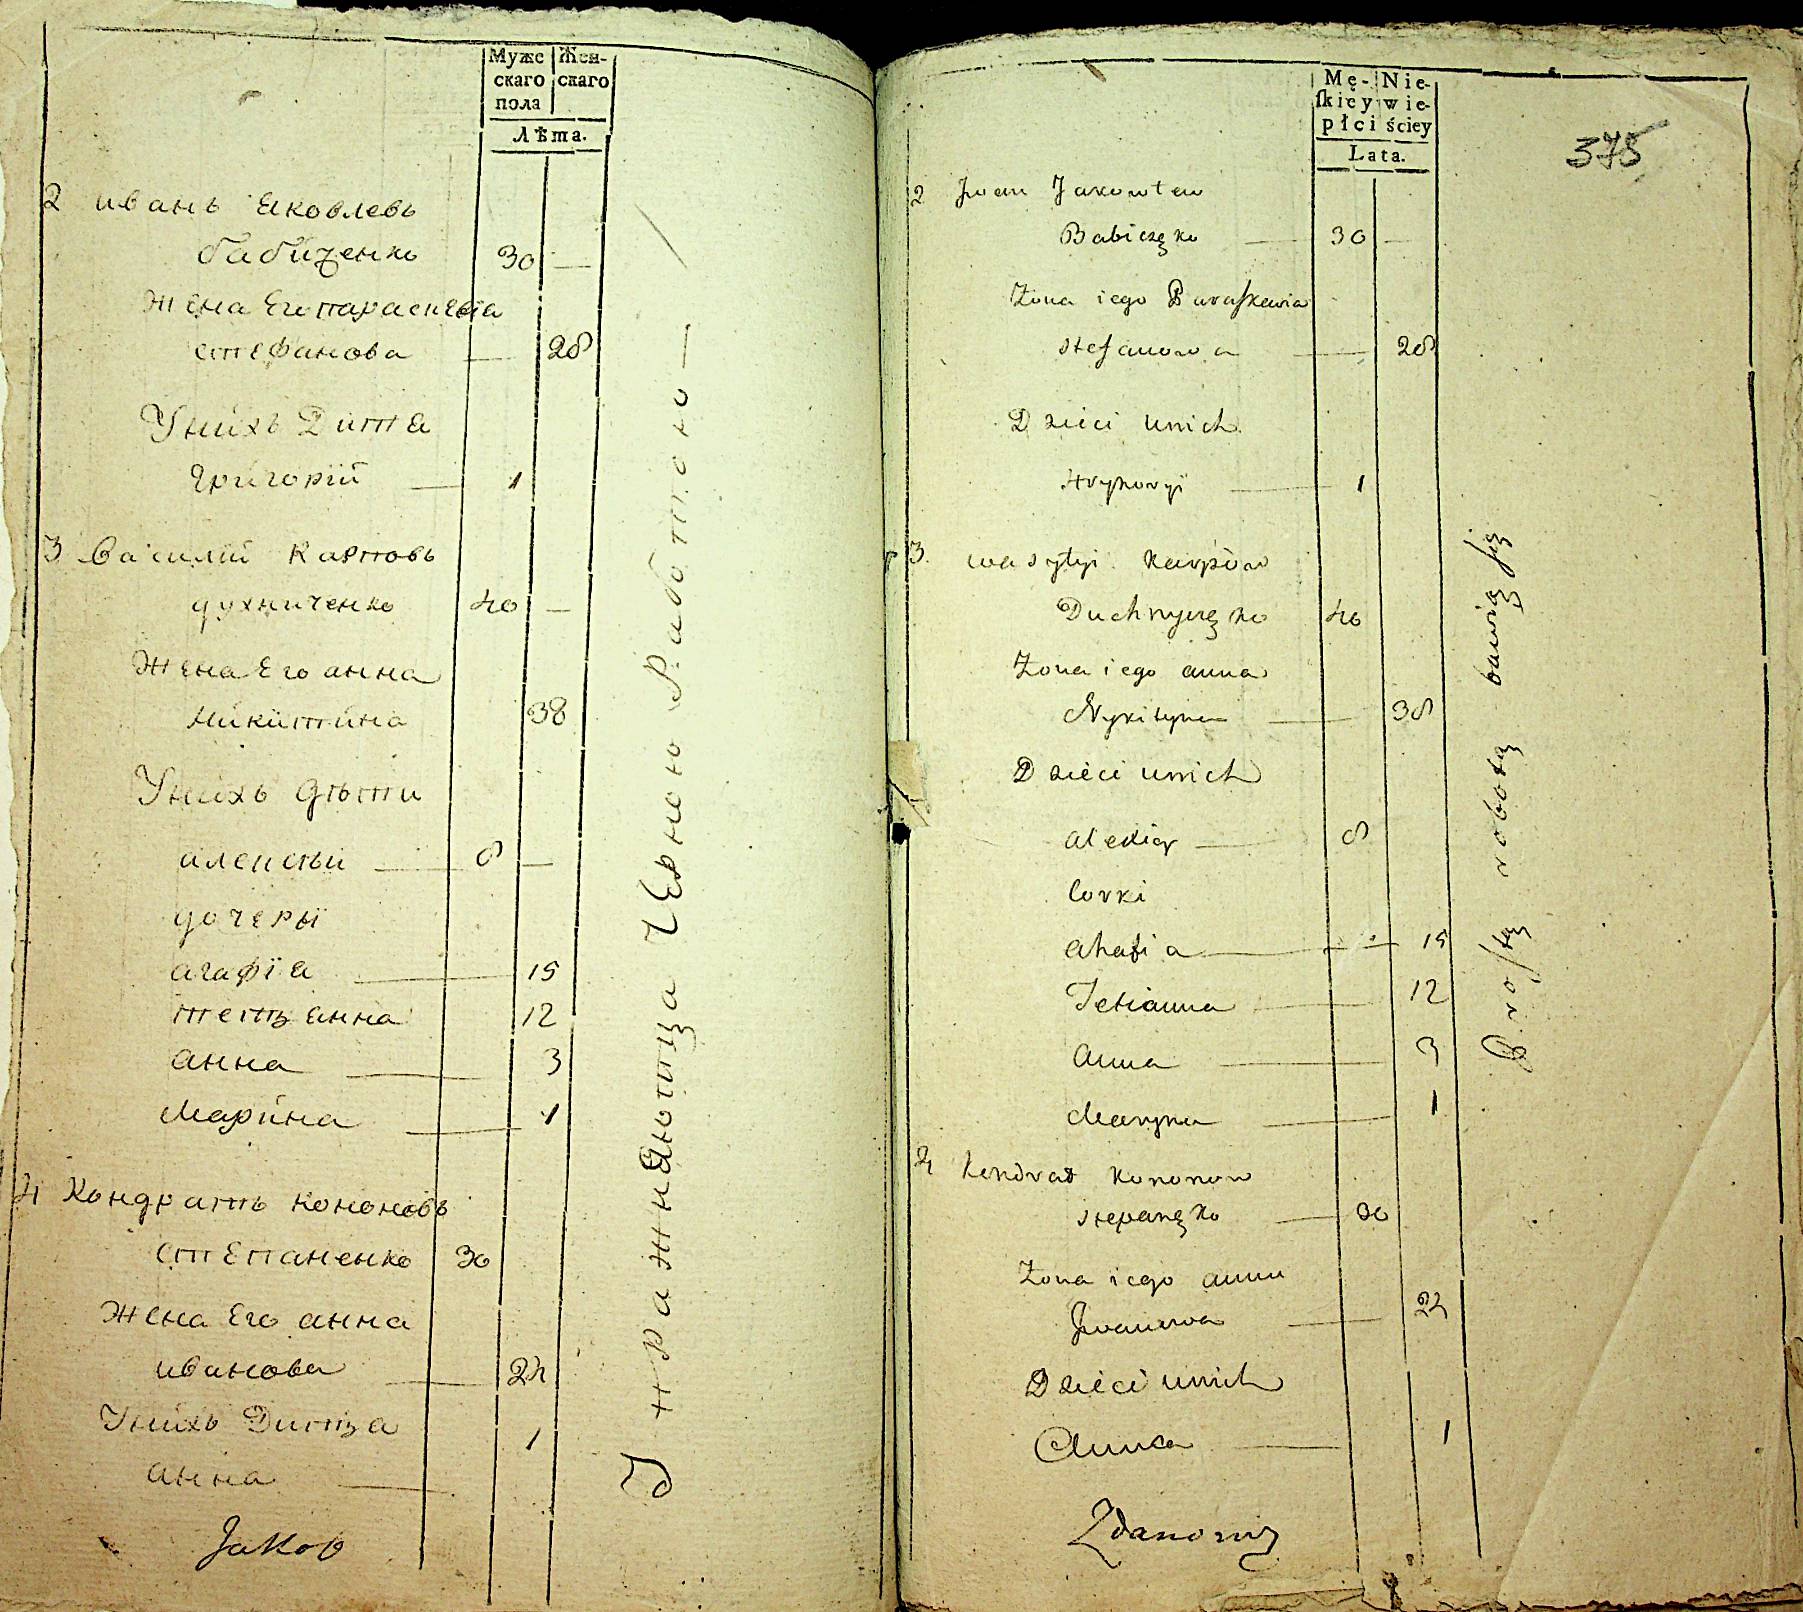 Муже
скаго
пола
Жен-
скаго
Лѣта.
2 иванъ Яковлевъ
бабиченко 30 —
Жена Его параскевіа
стефанова — 28
Унихъ Дитя
Григорій — 1
3 василій Карповъ
духниченко 40 —
Жена Его анна
Никитина 38
Унихъ дѣти
алексѣй — 8 —
дочеры
агафіа — 15
тетянна 12
анна — 3
Марина — 1
4 Кондратъ кононовъ
стЕпаненко 30
Жена Его анна
иванова — 24
Унихъ Дитя
анна — 1
Jakob
Упражняютца ЧЕрною Работою —
375
Mę-
skiey
płci
Nie-
wie-
ściey
Lata.
2 Jwan Jakowlew
Babiczęko — 30 —
Zona iego Paraskewia
stefanowa — 28
Dzieci unich
Hryhoryi — 1
3. wasylyi karpów
Duchnyczęko 40
Zona iego anna
Nykityna — 38
Dzieci unich
alexiey — 8
corki
ahafia — 15
Tetianna — 12
anna — 3
Maryna — 1
4 kondrat kononow
stepanęko — 30
Zona iego anna
Jwanowa — 24
Dzieci unich
Anna — 1
Zdanowicz
Prostą robotą bawią się